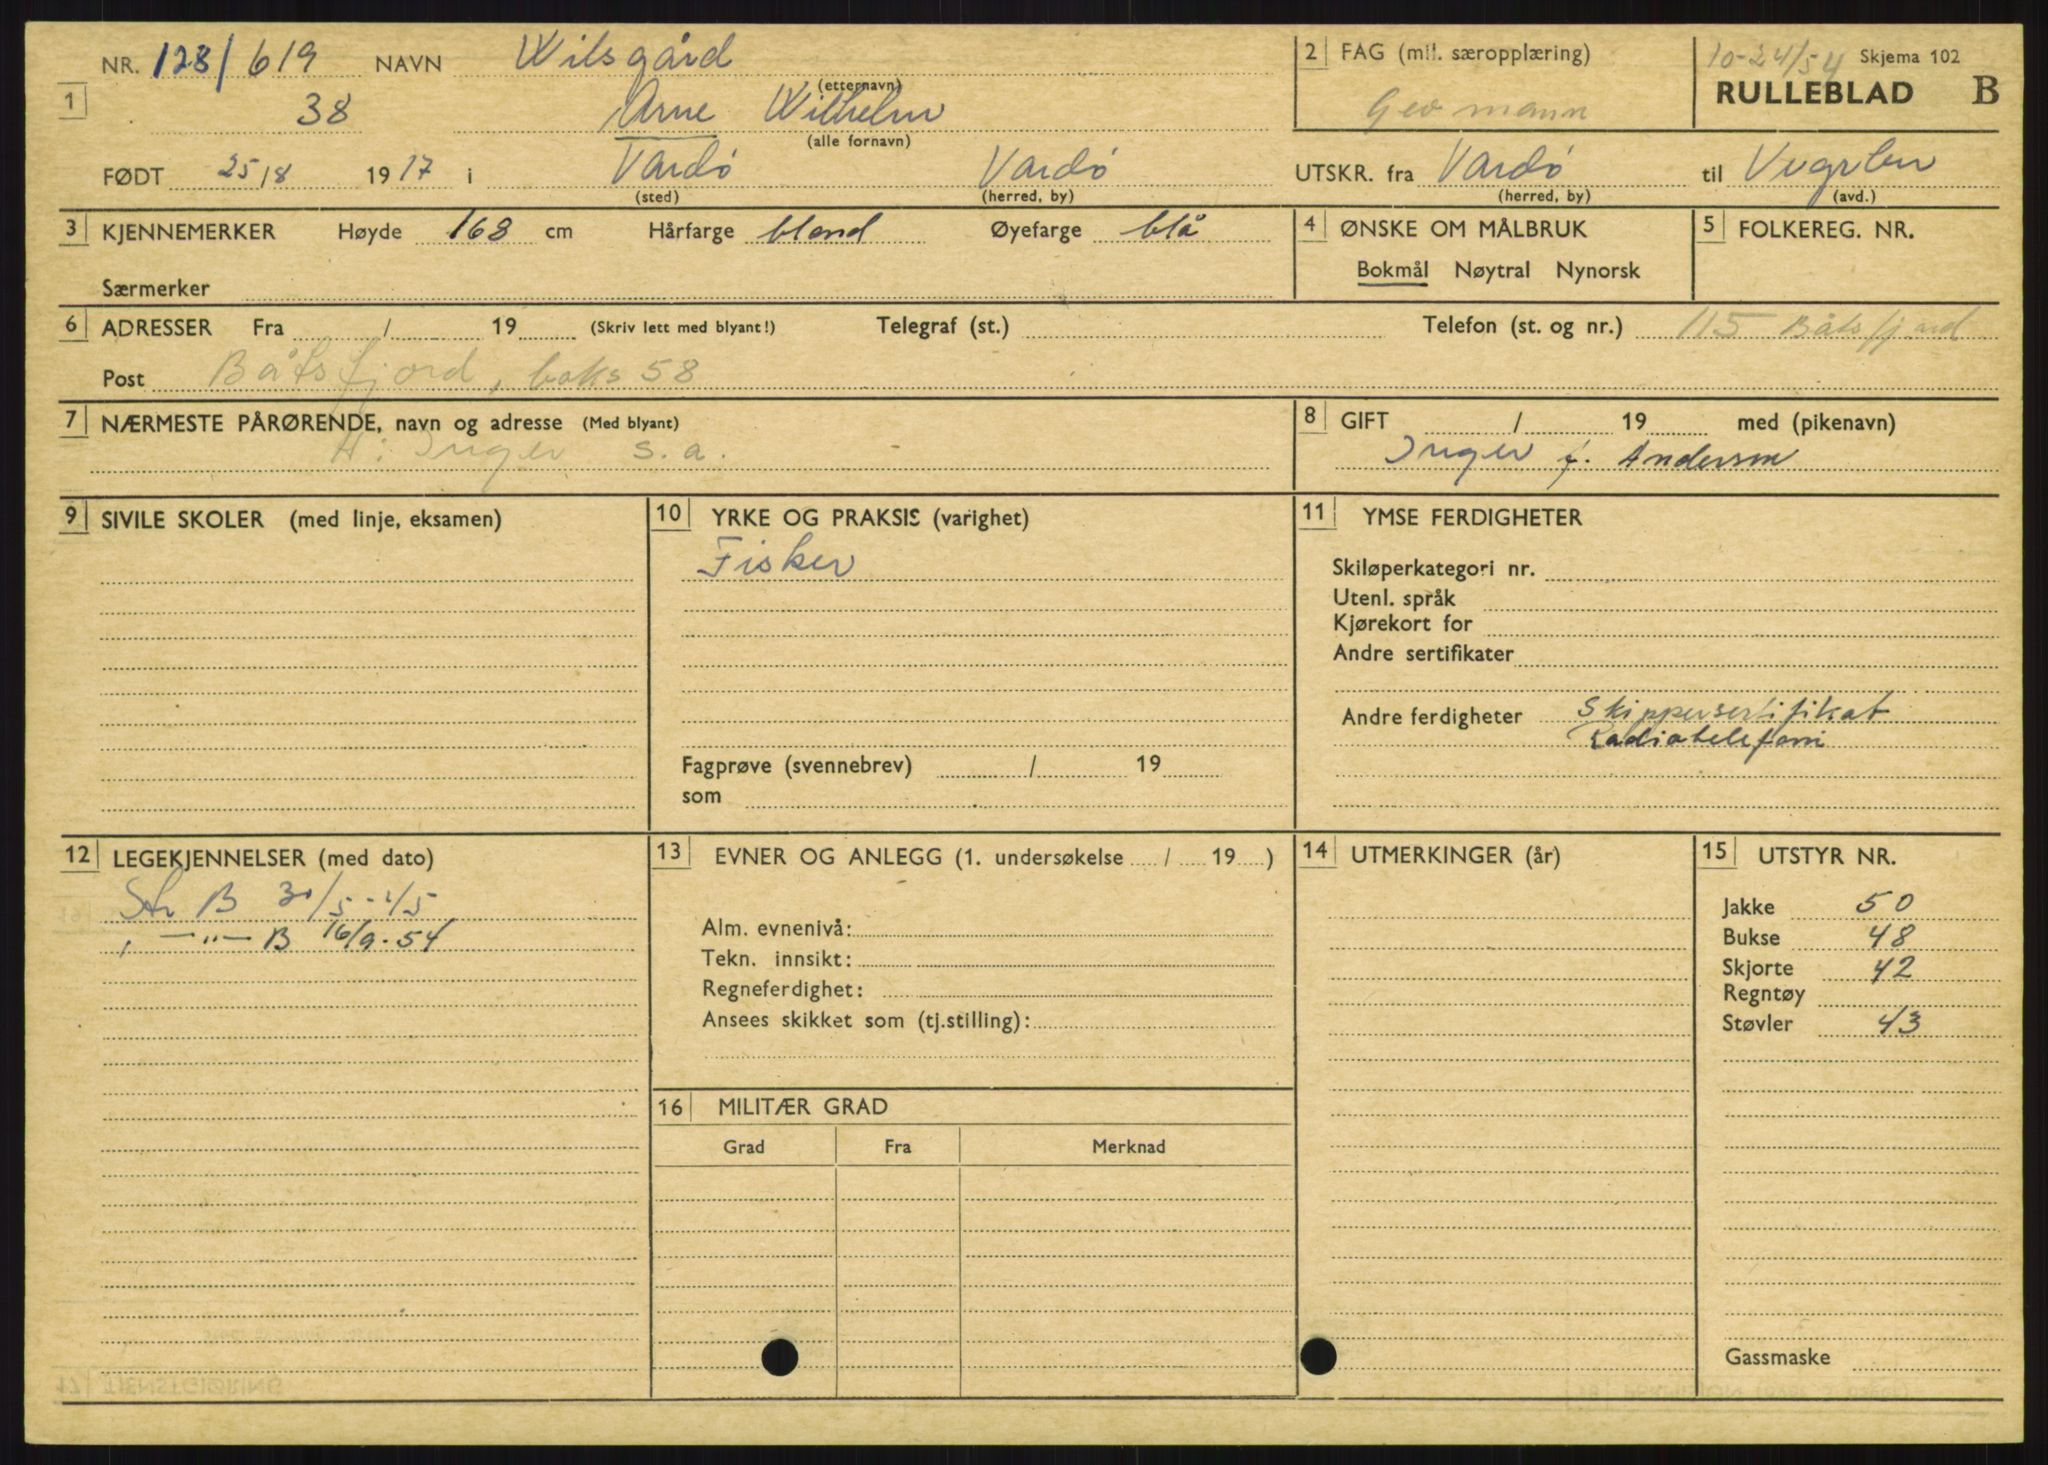 NR. 128/619 NAVN Wilsgård 2 FAG (mil. særopplæring) 10-24/54 Skjema 102
(etternavn)
1 38 Arne Wilhelm Gev mann RULLEBLAD B
(alle fornavn)
FØDT 25/8 1917 i Vardø Vardø UTSKR. fra Vardø til
(sted) (herred, by) (herred, by) (avd.)
3 KJENNEMERKER Høyde 168 cm Hårfarge blond Øyefarge blå 4 ØNSKE OM MÅLBRUK 5 FOLKEREG. NR.
Bokmål Nøytral Nynorsk
Særmerker
6 ADRESSER Fra / 19 (Skriv lett med blyant!) Telegraf (st.) Telefon (st. og nr.) 115 Båtsfjord
Post Båtsfjord, boks 58
7 NÆRMESTE PÅRØRENDE, navn og adresse (Med blyant) 8 GIFT / 19 med (pikenavn)
H: Inger s.a. Inger f. Andersen
9 SIVILE SKOLER (med linje, eksamen) 10 YRKE OG PRAKSIS (varighet) 11 YMSE FERDIGHETER
Fisker
Skiløperkategori nr.
Utenl. språk
Kjørekort for
Andre sertifikater
Andre ferdigheter Skippersertifikat
Radiotelefoni
Fagprøve (svennebrev) / 19
som
12 LEGEKJENNELSER (med dato) 13 EVNER OG ANLEGG (1. undersøkelse / 19 ) 14 UTMERKINGER (år) 15 UTSTYR NR.
B Jakke 50
, —"— B 16/9-54 Alm. evnenivå: Bukse 48
Tekn. innsikt: Skjorte 42
Regneferdighet: Regntøy
Ansees skikket som (tj.stilling): Støvler 43
16 MILITÆR GRAD
Grad Fra Merknad
Gassmaske